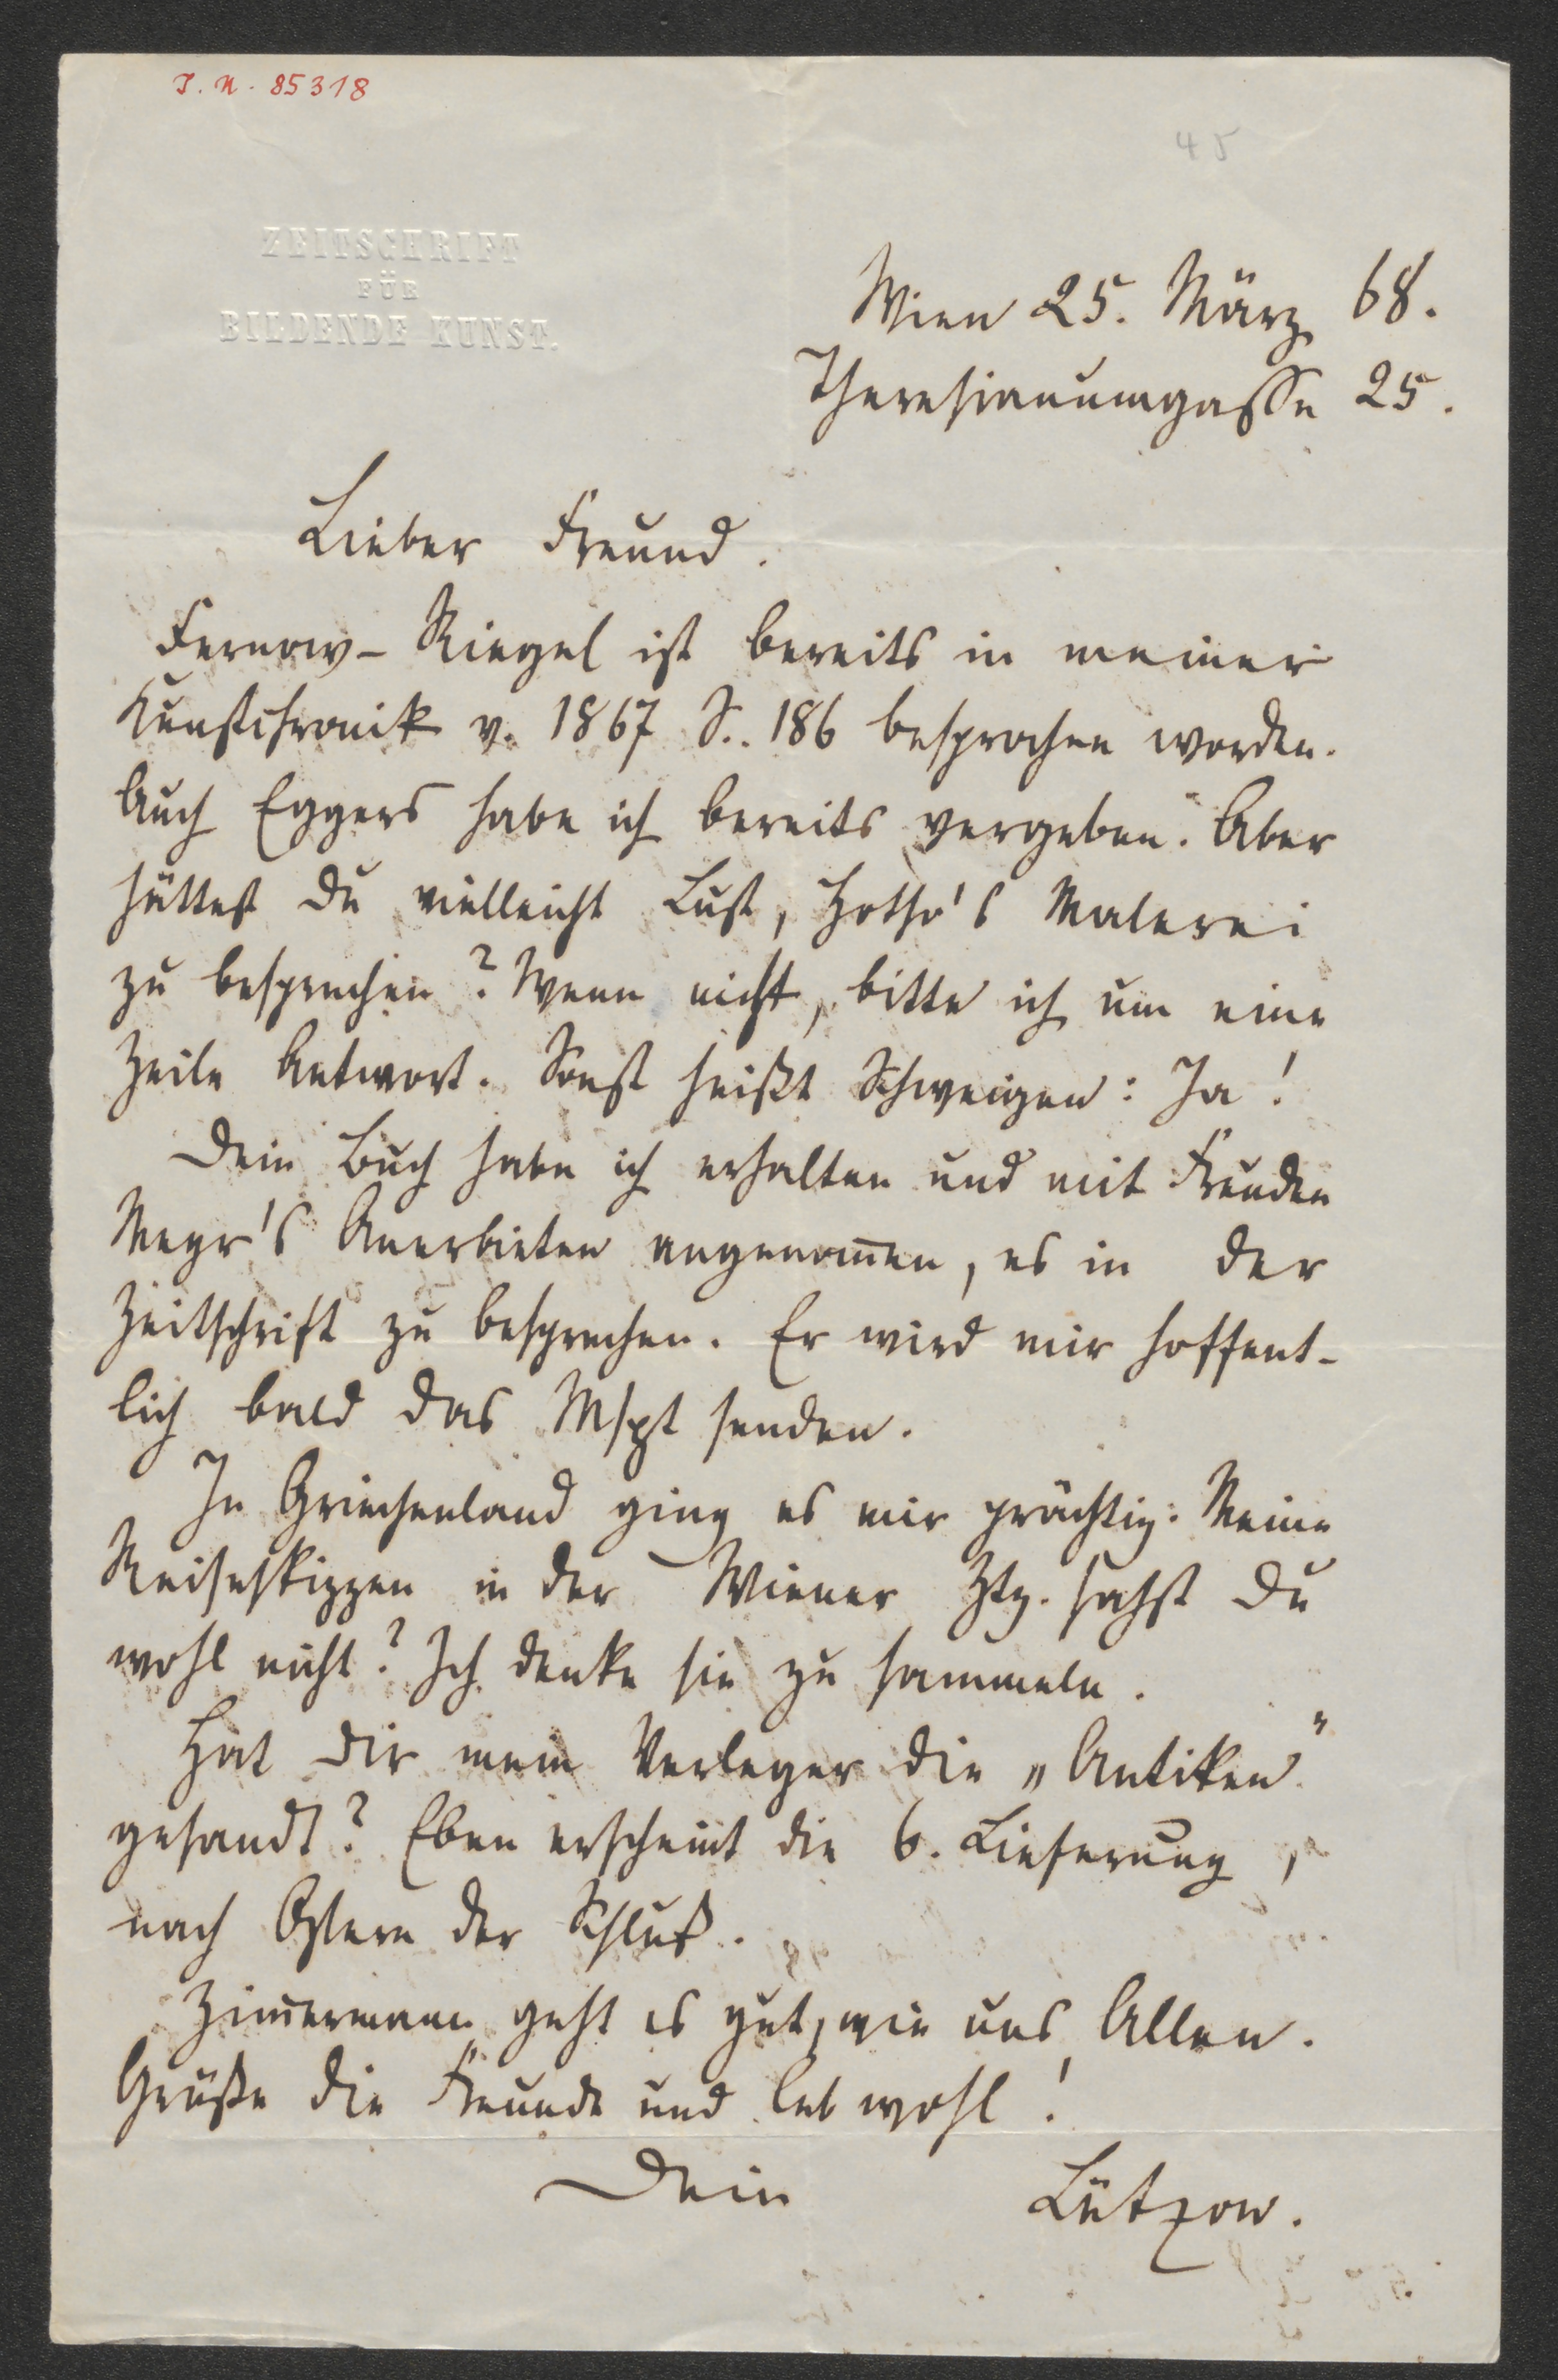 J. N. 85318
45
ZEITSCHRIFT
FÜR
BILDENDE KUNST.
Wien 25. März 68.
Theresianumgasse 25.
Lieber Freund.
Fernow-Riegel ist bereits in meiner
Kunstchronik v. 1867 S. 186 besprochen worden.
Auch Eggers habe ich bereits vergeben. Aber
hättest Du vielleicht Lust, Hotho's Malerei
zu besprechen? Wenn nicht, bitte ich um eine
Zeile Antwort. Sonst heißt Schweigen: Ja!
Dein Buch habe ich erhalten und mit Freuden
Meyr's Anerbieten angenom̅en, es in der
Zeitschrift zu besprechen. Er wird mir hoffent-
lich bald das Mspt senden.
In Griechenland ging es mir prächtig. Meine
Reiseskizzen in der Wiener Ztg. sahst Du
wohl nicht? Ich denke sie zu sammeln.
Hat Dir mein Verleger die „Antiken"
gesandt? Eben erscheint die 6. Lieferung,
nach Ostern der Schluß.
Zim̅ermann geht es gut, wie uns Allen.
Grüße die Freunde und leb wohl!
Dein Lützow.